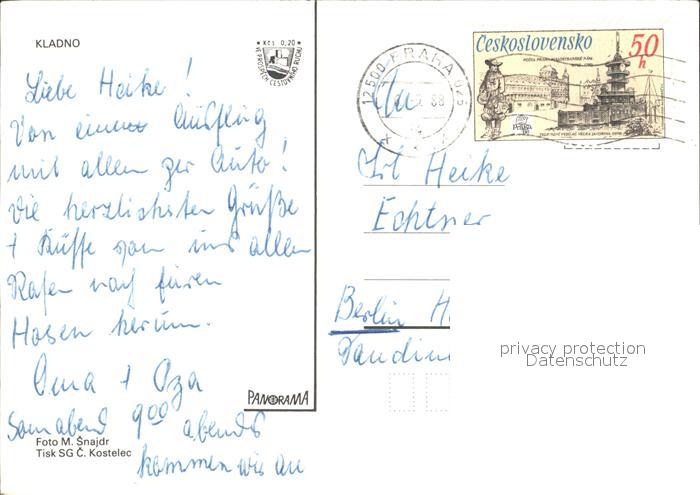 KLADNO
Kčs 0,20
VE PROSPĚCH CESTOVNÍHO RUCHU
Liebe Heike!
Von einem Ausflug
mit allen per Auto!
die herzlichsten Grüße
+ Küsse von uns allen
Hasen herum.
Oma + Opa
Sonnabend 9 00 abends
kommen wir an
Foto M. Šnajdr
Tisk SG Č. Kostelec
PANORAMA
12500 PRAHA 025
88
Československo
50 h
An
Frl Heike
Echtner
Berlin
privacy protection
Datenschutz